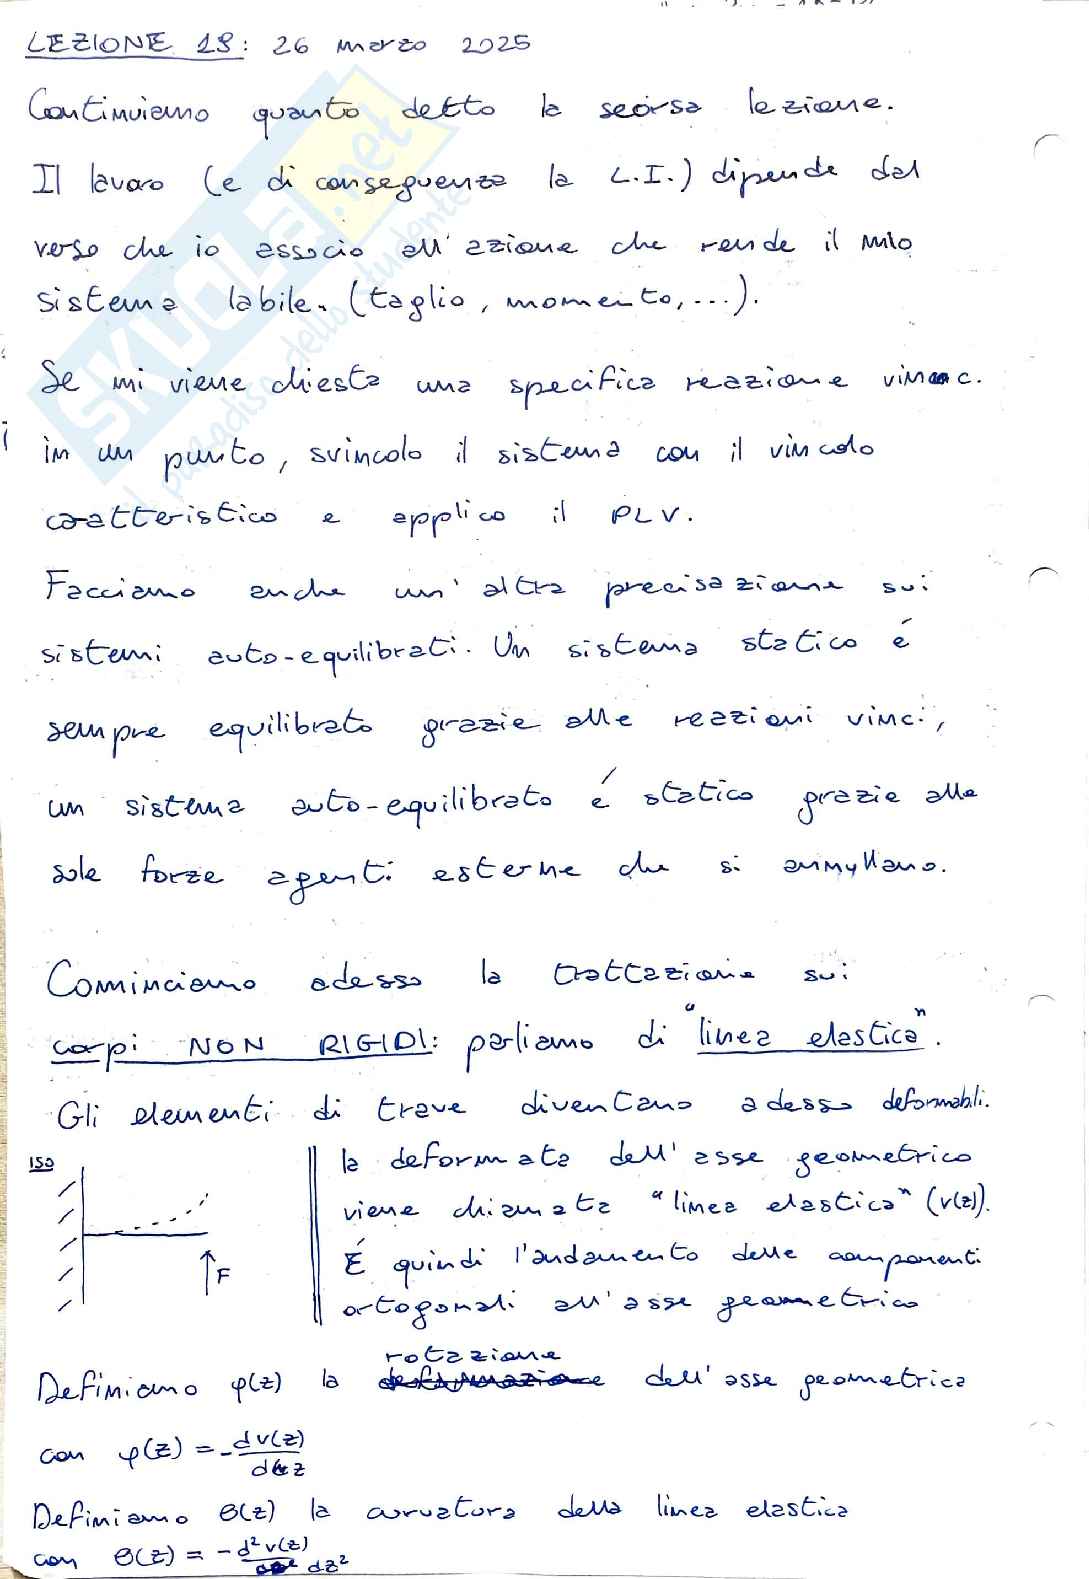 LEZIONE 18: 26 marzo 2025
Continuiamo quanto detto la scorsa lezione.
Il lavoro (e di conseguenza la L.I.) dipende dal
verso che io associo all'azione che rende il mio
sistema labile. (taglio, momento,...).
Se mi viene chiesta una specifica reazione vinc.
in un punto, svincolo il sistema con il vincolo
caratteristico e applico il PLV.
Facciamo anche un'altra precisazione sui
sistemi auto-equilibrati. Un sistema statico é
sempre equilibrato grazie alle reazioni vinc.,
un sistema auto-equilibrato é statico grazie alle
sole forze agenti esterne che si annullano.
Cominciamo adesso la trattazione sui
corpi NON RIGIDI: parliamo di "linea elastica".
Gli elementi di trave diventano adesso deformabili.
ISO
F
la deformata dell'asse geometrico
viene chiamata "linea elastica" (v(z)).
É quindi l'andamento delle componenti
ortogonali all'asse geometrico
rotazione
Definiamo φ(z) la deformazione dell'asse geometrico
con φ(z) = -dv(z)/dz
Definiamo θ(z) la curvatura della linea elastica
con θ(z) = -d²v(z)/dz²
SKUOLA.net
il paradiso dello studente